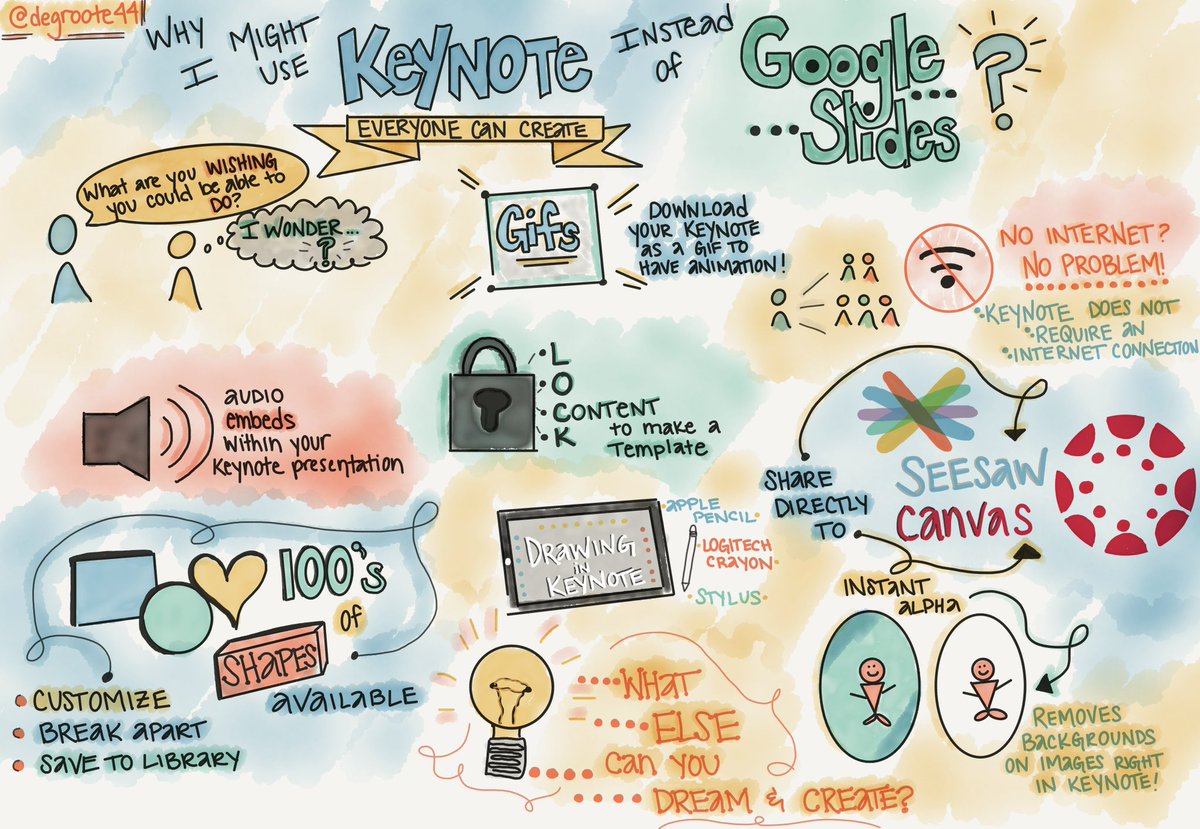 @degroote44
WHY I MIGHT USE KEYNOTE INSTEAD OF Google Slides ?
EVERYONE CAN CREATE
What are you WISHING
you could be able to
DO?
I WONDER...
?
Gifs
DOWNLOAD
YOUR KEYNOTE
AS A GIF TO
HAVE ANIMATION!
NO INTERNET?
NO PROBLEM!
• KEYNOTE DOES NOT
• REQUIRE AN
• INTERNET CONNECTION
AUDIO
embeds
within your
Keynote presentation
• L
• O
• CONTENT
• K
to make a
Template
SHARE
DIRECTLY
TO
SEESAW
canvas
100's
of
SHAPES
AVAILABLE
• CUSTOMIZE
• BREAK APART
• SAVE TO LIBRARY
DRAWING
IN
KEYNOTE
• APPLE
PENCIL •
• LOGITECH
CRAYON •
• STYLUS •
INSTANT
ALPHA
REMOVES
BACKGROUNDS
ON IMAGES RIGHT
IN KEYNOTE!
WHAT
ELSE
can you
DREAM & CREATE?